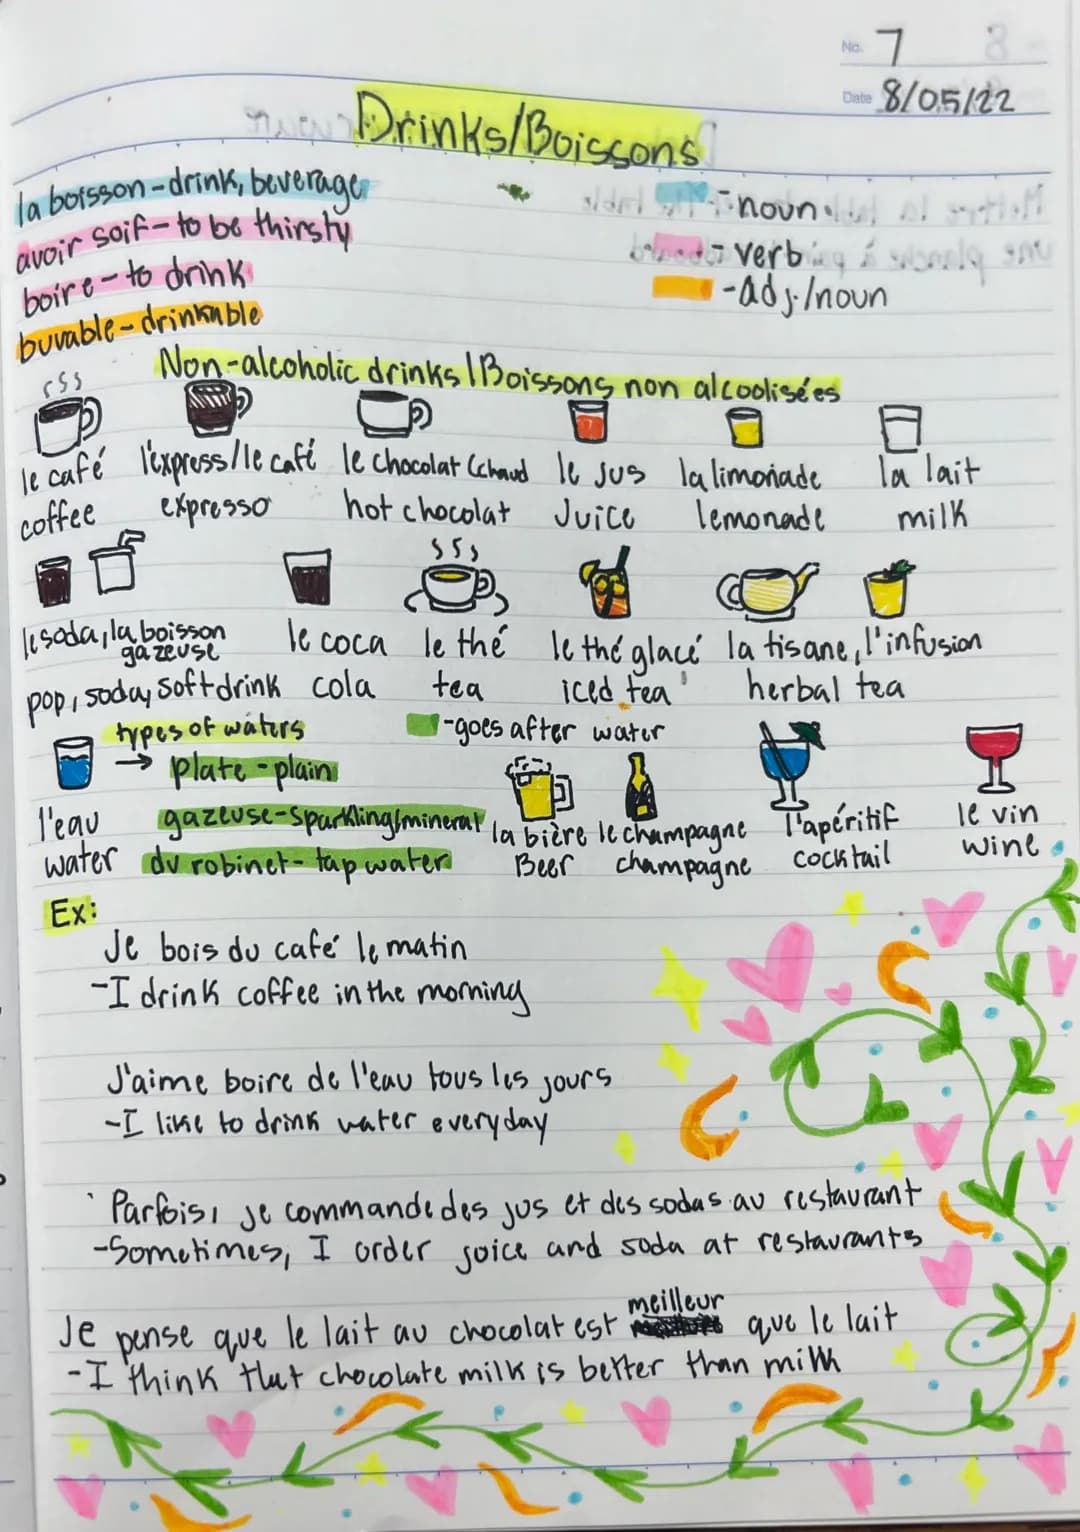 No. 7
Date 8/05/22
Drinks/Boissons
la boisson - drink, beverage
avoir soif - to be thirsty
boire - to drink
buvable - drinkable
- noun
- verb
- adj./noun
Non-alcoholic drinks | Boissons non alcoolisées
le café l'express/le café le chocolat (chaud le jus la limonade la lait
coffee expresso hot chocolat Juice lemonade milk
le soda, la boisson gazeuse le coca le thé le thé glacé la tisane, l'infusion
pop, soda, soft drink cola tea iced tea herbal tea
types of waters - goes after water
→ plate - plain
l'eau gazeuse - sparkling/mineral la bière le champagne l'apéritif le vin
water du robinet - tap water Beer champagne cocktail wine
Ex:
Je bois du café le matin
- I drink coffee in the morning
J'aime boire de l'eau tous les jours
- I like to drink water everyday
Parfois, je commande des jus et des sodas au restaurant
- Sometimes, I order juice and soda at restaurants
Je pense que le lait au chocolat est meilleur que le lait
- I think that chocolate milk is better than milk